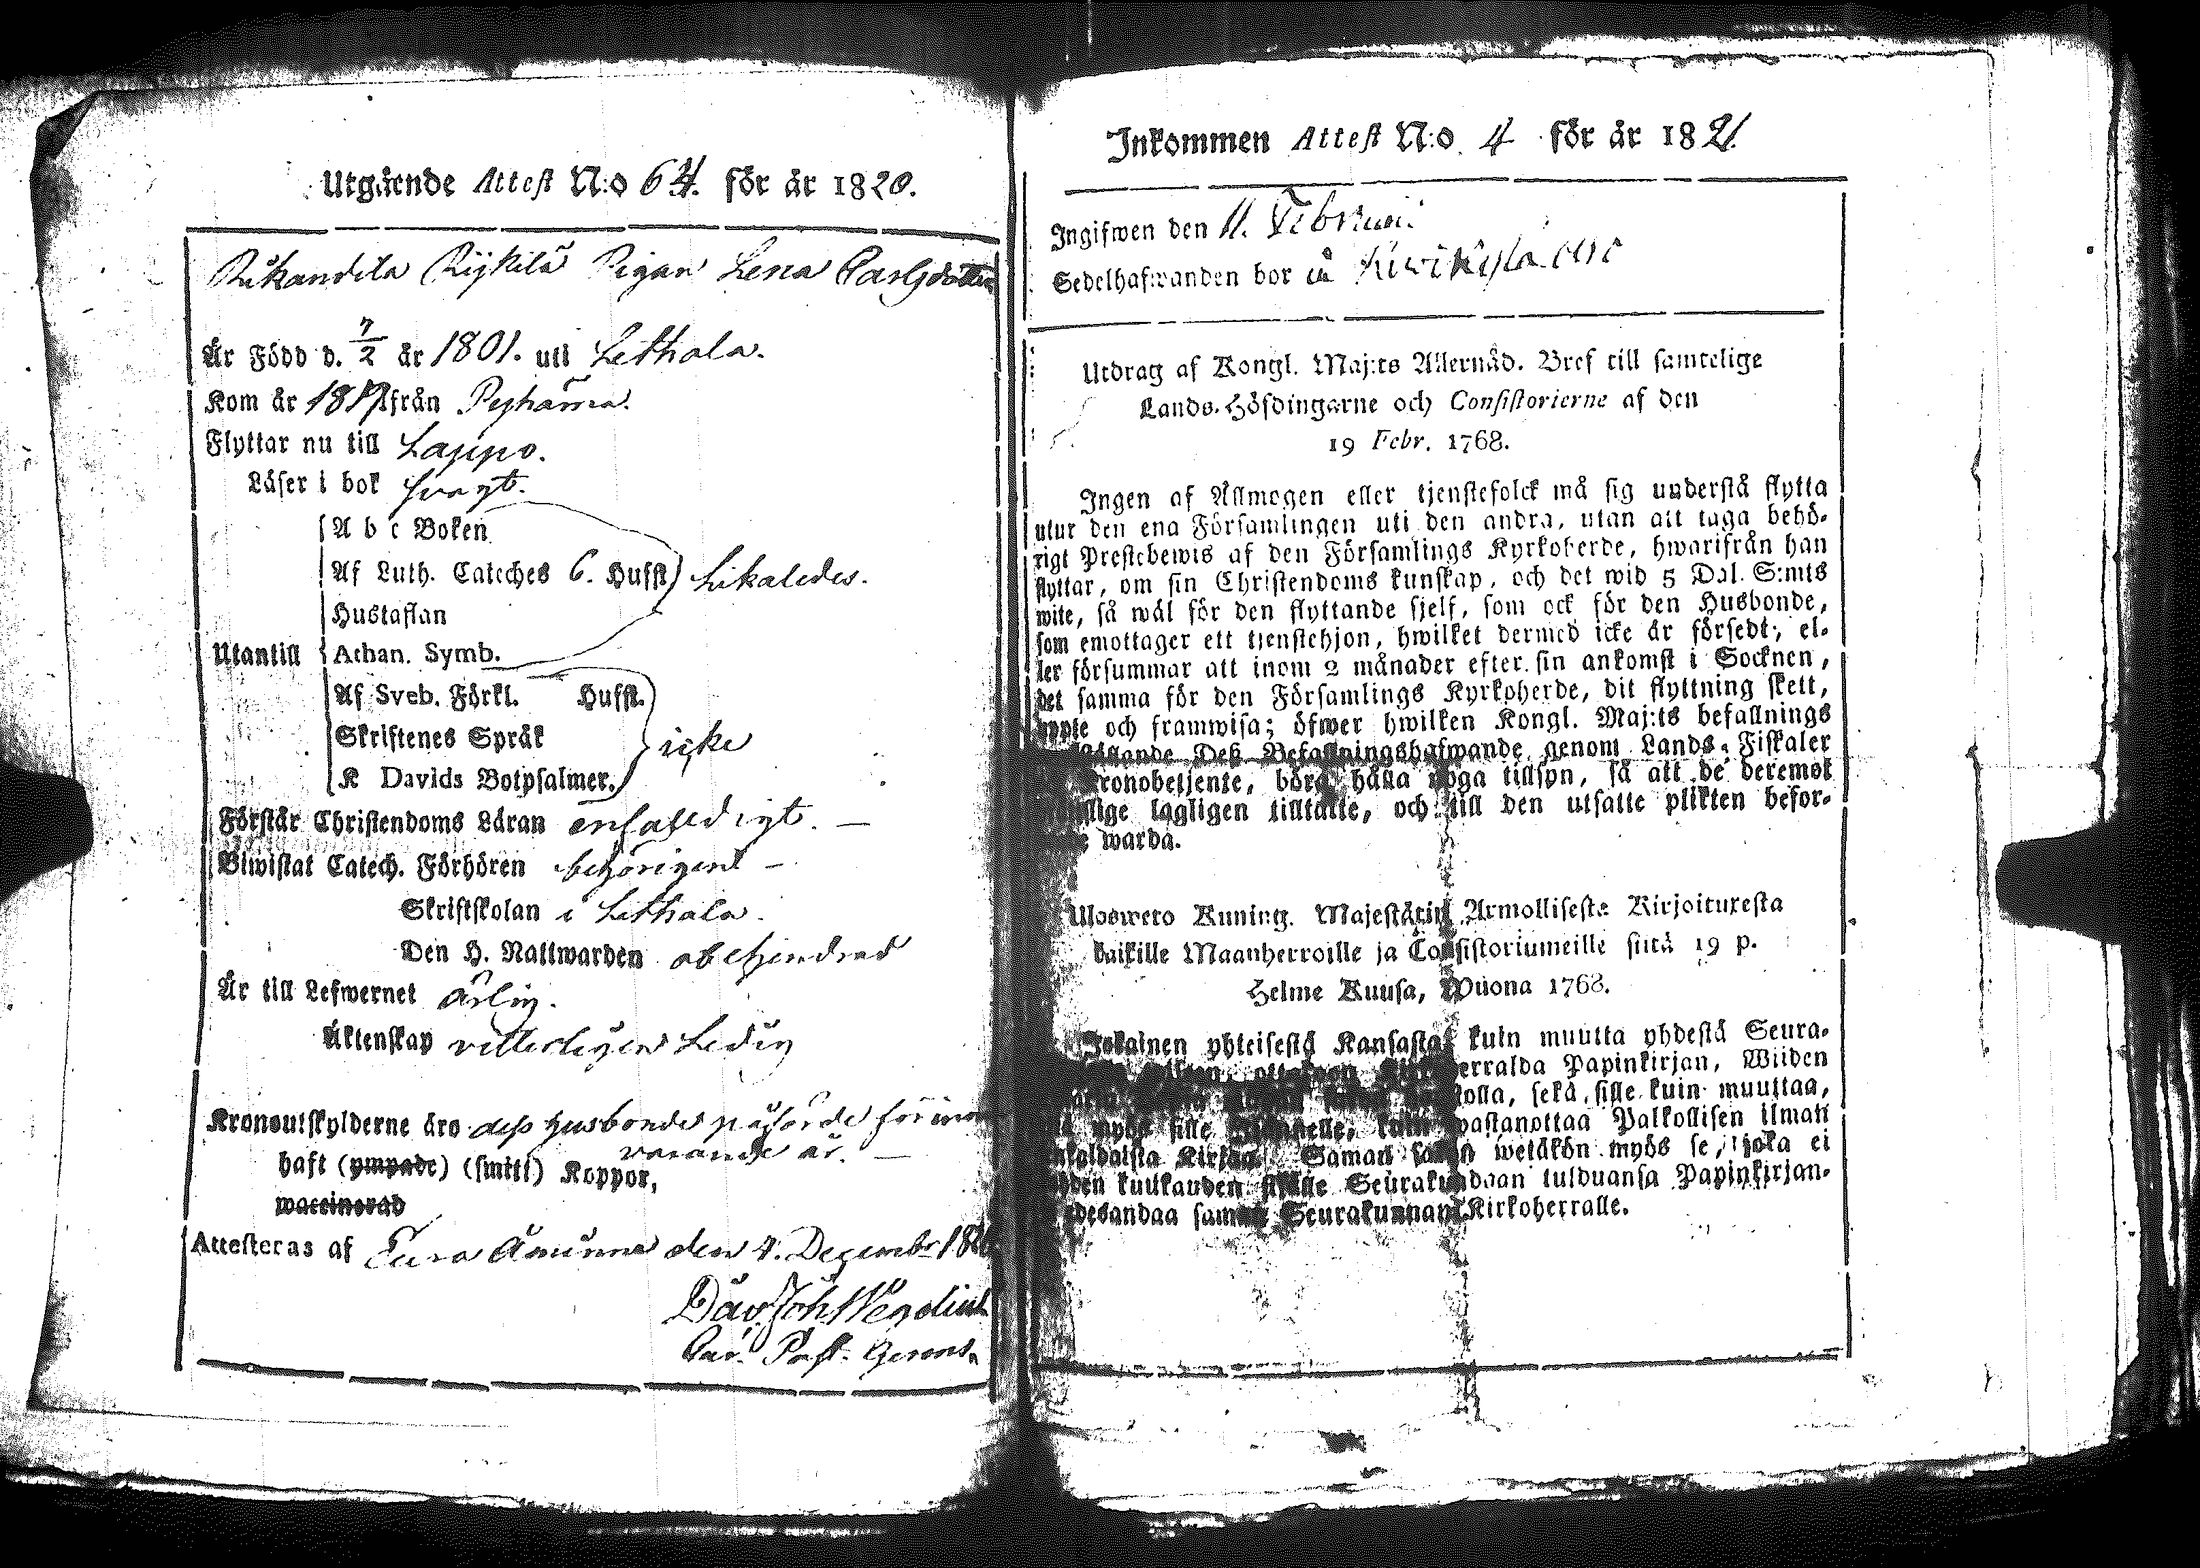 Utgående Attest N:o 64. för år 1820.
Rikandila Rijkilä Pigan Lena Carlsdotter
Är Född d. 7/2 år 1801. uti Lethala.
Kom år 1819 från Pyhäma.
Flyttar nu till Lappo.
Läser i bok svagt.
A b c Boken
Af Luth. Cateches 6. Hufst. Likaledes.
Hustaflan
Utantill Athan. Symb.
Af Sveb. Förkl. Hufst.
Skriftenes Språk icke
K Davids Botpsalmer.
Förstår Christendoms Läran enfaldigt. —
Biwistat Catech. Förhören behörigen —
Skriftskolan i Lethala.
Den H. Nattwarden obehindrad
Är till Lefwernet ärlig.
Äktenskap vetterligen Ledig
Kronoutskylderne äro dess husbondes påförde för inne
varande år. —
haft (ympade) (smitt) Koppor,
waccinerad
Attesteras af Eura Åminne den 4. Decembr 1820
Dav. Joh. Wegelius
Par. Past. Gerens.
Inkommen Attest N:o 4 för år 1821.
Ingifwen den 11. Februari
Sedelhafwanden bor å Kiwikylä
Utdrag af Kongl. Maj:ts Allernåd. Bref till samtelige
Lands-Höfdingarne och Consistorierne af den
19 Febr. 1768.
Ingen af Allmogen eller tjenstefolck må sig understå flytta
utur den ena Församlingen uti den andra, utan att taga behö-
rigt Prestebewis af den Församlings Kyrkoherde, hwarifrån han
flyttar, om sin Christendoms kunskap, och det wid 5 Dal. S:mts
wite, så wäl för den flyttande sjelf, som ock för den Husbonde,
som emottager ett tjenstehjon, hwilket dermed icke är försedt, el-
ler försummar att inom 2 månader efter sin ankomst i Socknen,
det samma för den Församlings Kyrkoherde, dit flyttning skett,
uppte och framwisa; öfwer hwilken Kongl. Maj:ts befallnings
Deß Befallningshafwande genom Lands-Fiskaler
Kronobetjente, böra hålla noga tillsyn, så att de deremot
lagligen tilltalte, och till den utsatte plikten befor-
warda.
Uloswero Kuning. Majestätin Armollisesta Kirjoituxesta
kaikille Maanherroille ja Consistoriumeille siitä 19 p.
Helme Kuusa, Wuona 1768.
Jokainen yhteisestä Kansasta kuin muutta yhdestä Seura-
ottakoon Kirkoherralda Papinkirjan, Wiiden
sekä sille kuin muuttaa,
myös sille kuin wastanottaa Palkollisen ilman
Kirjan Saman wetäkön myös se, joka ei
kuukauden Seurakundaan tulduansa Papinkirjan-
edesandaa saman Seurakunnan Kirkoherralle.